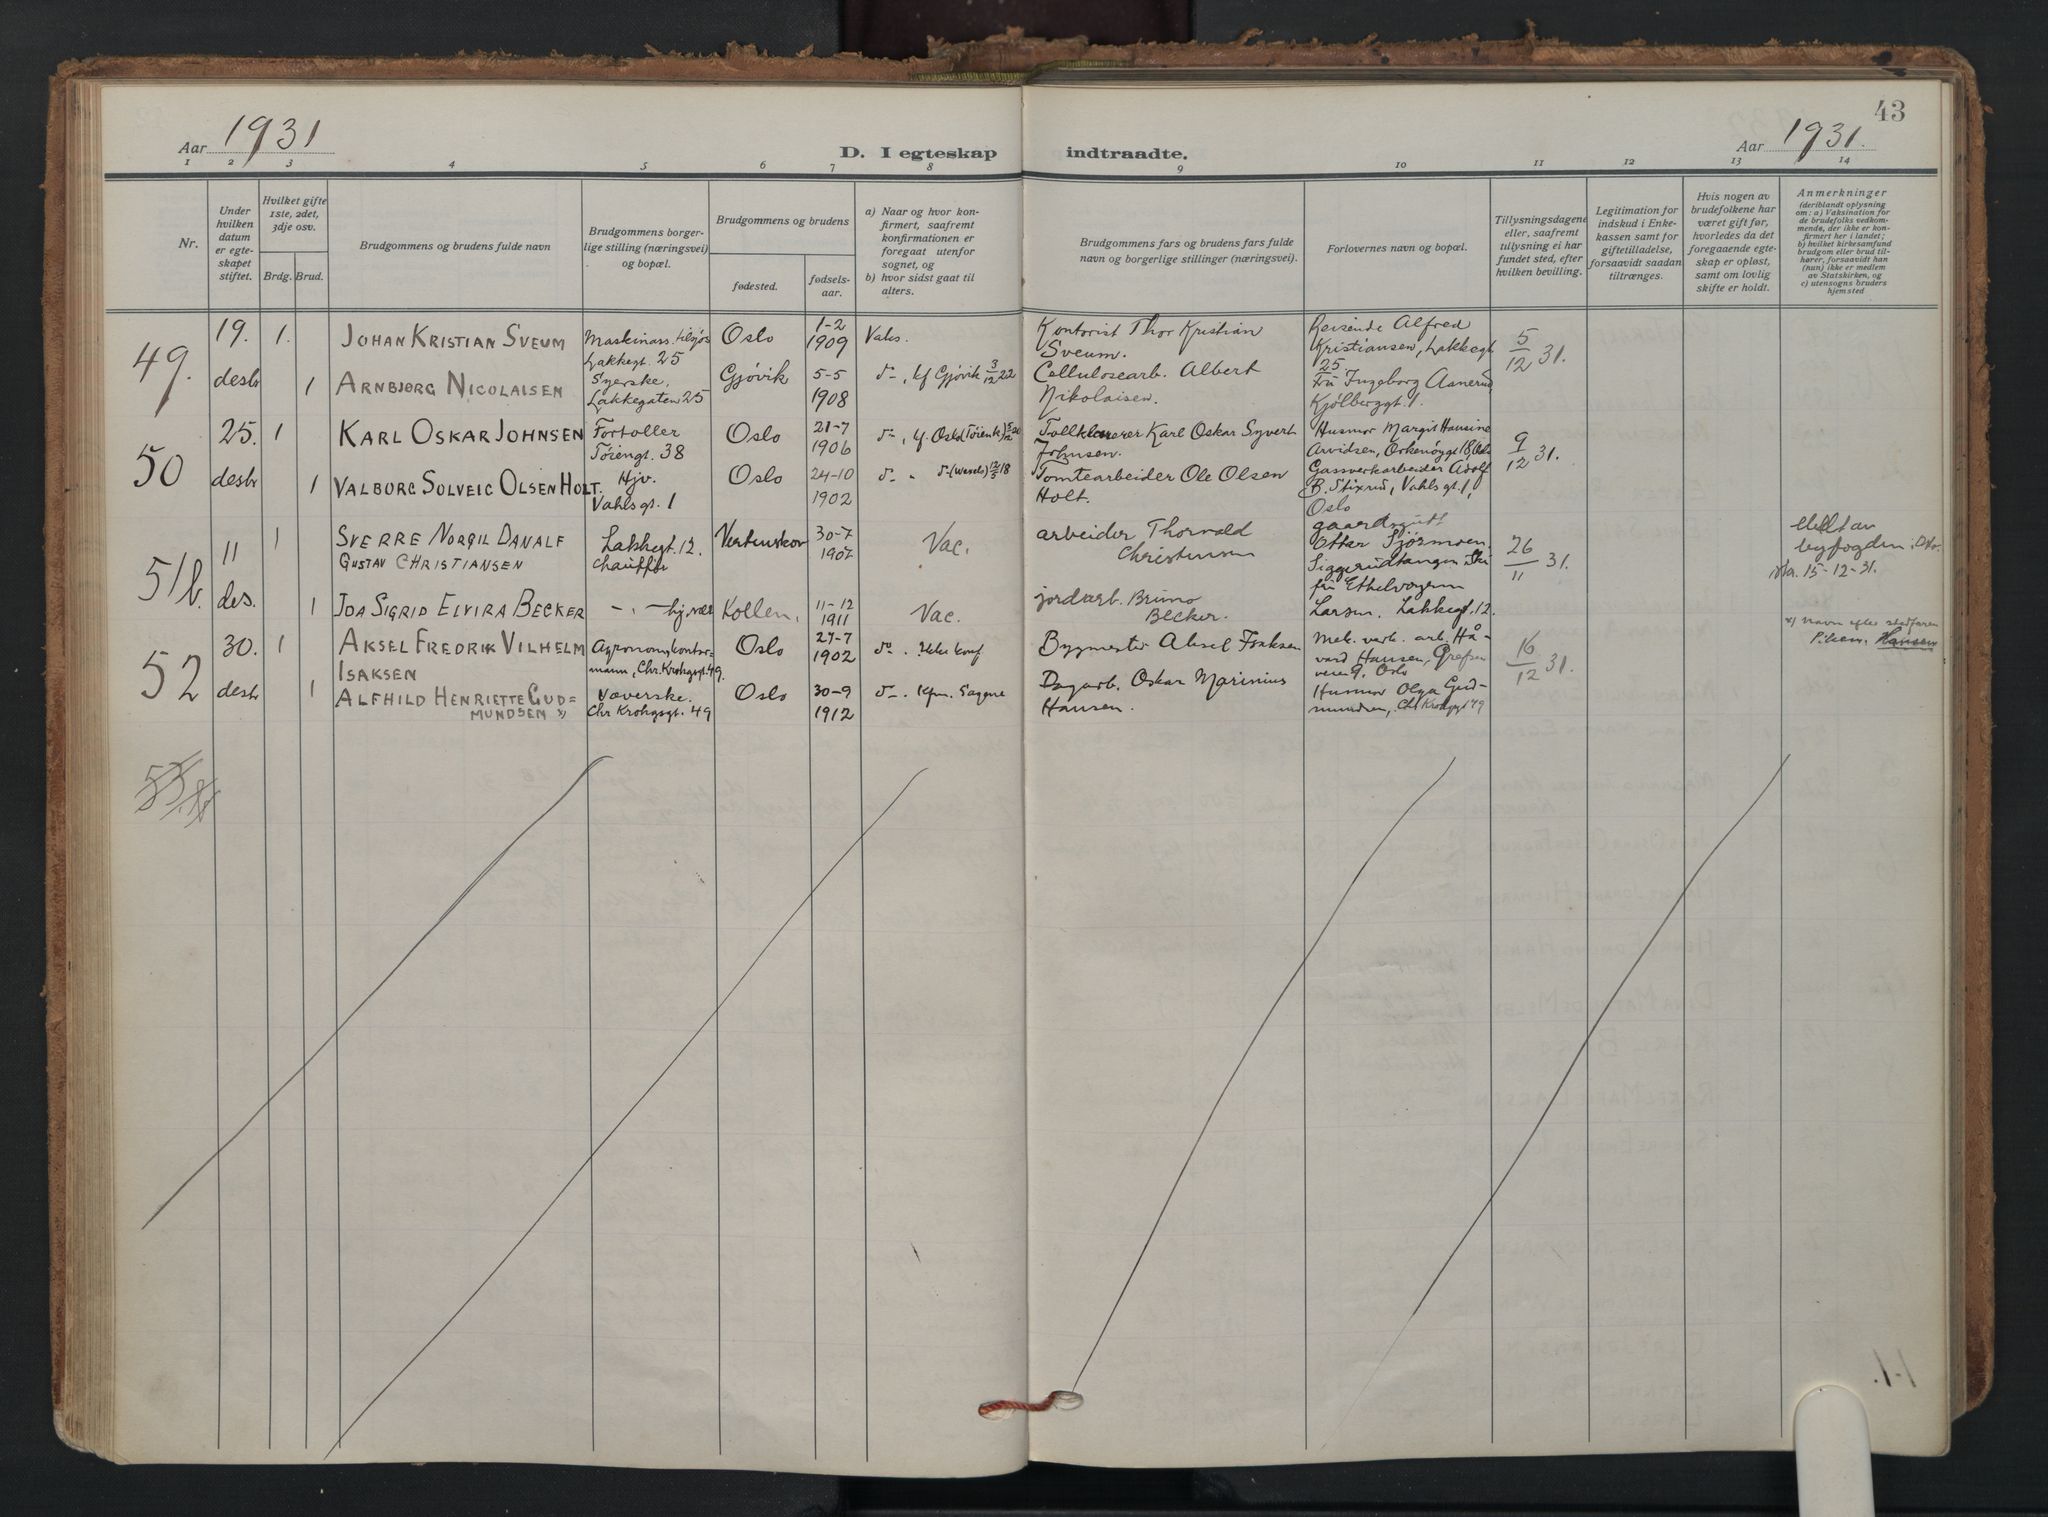 Aar 1931
D. I egteskap indtraadte.
Aar 1931.
43
1 2 3 4 5 6 7 8 9 10 11 12 13 14
Nr.
Under hvilken datum er egteskapet stiftet.
Hvilket gifte 1ste, 2det, 3dje osv.
Brdg. Brud.
Brudgommens og brudens fulde navn
Brudgommens borgerlige stilling (næringsvei) og bopæl.
Brudgommens og brudens
fødested. fødselsaar.
a) Naar og hvor konfirmert, saafremt konfirmationen er foregaat utenfor sognet, og
b) hvor sidst gaat til alters.
Brudgommens fars og brudens fars fulde navn og borgerlige stillinger (næringsvei).
Forlovernes navn og bopæl.
Tillysningsdagene eller, saafremt tillysning ei har fundet sted, efter hvilken bevilling.
Legitimation for indskud i Enkekassen samt for giftetilladelse, forsaavidt saadan tiltrænges.
Hvis nogen av brudefolkene har været gift før, hvorledes da det foregaaende egteskap er opløst, samt om lovlig skifte er holdt.
Anmerkninger
(deriblandt oplysning om: a) Vaksination for de brudefolks vedkommende, der ikke er konfirmert her i landet; b) hvilket kirkesamfund brudgom eller brud tilhører, forsaavidt han (hun) ikke er medlem av Statskirken, og c) utensogns bruders hjemsted
49.
19. desbr
1.
JOHAN KRISTIAN SVEUM
Maskinass. tilsjøs
Lakkegt. 25
Oslo
1-2 1909
Vaks.
Kontorist Thor Kristian
Sveum.
Reisende Alfred
Kristiansen, Lakkegt.
25
5/12 31.
1
ARNBJØRG NICOLAISEN
Syerske,
Lakkegaten 25
Gjøvik
5-5 1908
d-, kf Gjøvik 3/12 22
Cellulosearb. Albert
Nikolaisen.
Fru Ingeborg Aanerud,
Kjølberggt. 1.
50
25. desbr
1
KARL OSKAR JOHNSEN
Fortoller
Tøiengt. 38
Oslo
21-7 1906
Tollklarerer Karl Oskar Syvert
Johnsen.
Husmor Margit Hansine
Arvidsen,
9/12 31.
1
VALBORG SOLVEIG OLSEN HOLT.
Hjv.
Vahlsgt. 1
Oslo
24-10 1902
Tomtearbeider Ole Olsen
Holt.
Gassverkarbeider Adolf
B. Stixrud, Vahls gt. 1,
Oslo
51 b.
11 des.
1
SVERRE NORGIL DANALF
GUSTAV CHRISTIANSEN
Lakkegt. 12.
chauffør
30-7 1907
Vac.
arbeider Thorvald
Christensen
gaardsgutt
Ottar Sjøsmoen,
26/11 31.
viet av
byfogden i Oslo.
15-12-31.
1
IDA SIGRID ELVIRA BECKER
- " - hj.vær
Kollen.
11-12 1911
Vac.
jordarb. Bruno
Becker.
Larsen. Lakkegt. 12.
52
30. desbr
1
AKSEL FREDRIK VILHELM
ISAKSEN
Agronom, kontormann, Chr. Krohgsgt. 49.
Oslo
27-7 1902
do. Ikke konf
Bygmester Aksel Isaksen
Mek. verk. arb. Håvard Hansen, Grefsenveien 9. Oslo
16/12 31.
x) navn efter stedfaren
Hansen
1
ALFHILD HENRIETTE GUD=
MUNDSEN x)
Væverske.
Chr Krohgsgt. 49
Oslo
30-9 1912
d-. Kfm. Sagene
Dagarb. Oskar Marinius
Hansen.
Husmor Olga Gudmundsen, Chr Krohgsgt 49
53.